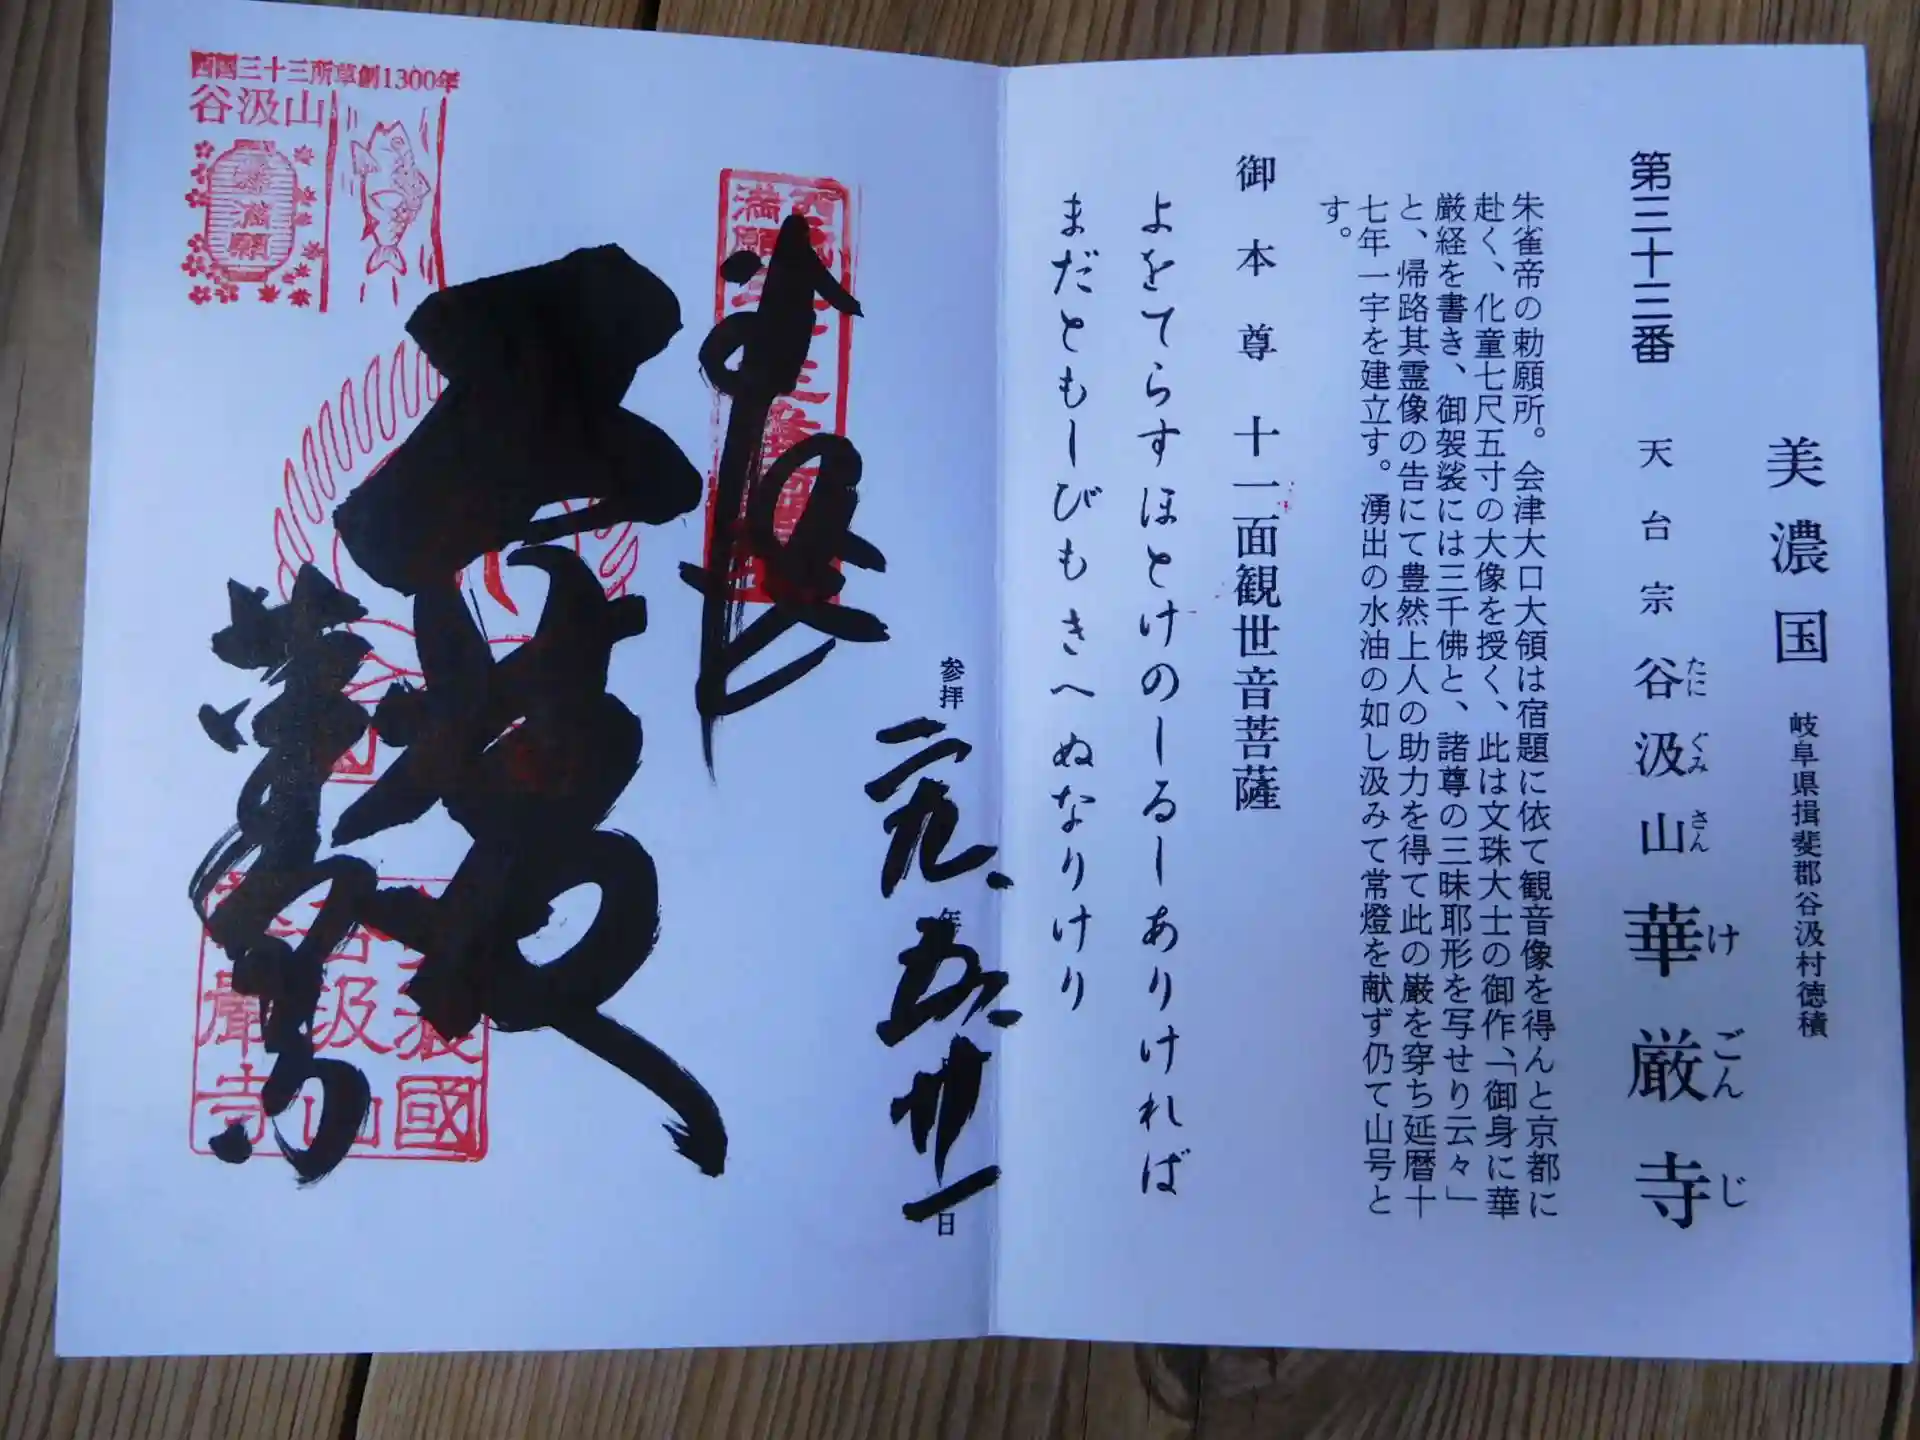 美濃国 岐阜県揖斐郡谷汲村徳積
第三十三番 天台宗 谷汲山 華厳寺
たにぐみさん けごんじ
朱雀帝の勅願所。会津大口大領は宿題に依て観音像を得んと京都に
赴く、化童七尺五寸の大像を授く、此は文珠大士の御作、「御身に華
厳経を書き、御袈裟には三千佛と、諸尊の三昧耶形を写せり云々」
と、帰路其霊像の告にて豊然上人の助力を得て此の巌を穿ち延暦十
七年一宇を建立す。湧出の水油の如し汲みて常燈を献ず仍て山号と
す。
御本尊 十一面観世音菩薩
よをてらすほとけのしるしありければ
まだともしびもきへぬなりけり
参拝 二九、年五、卅一日
西国三十三所草創1300年
谷汲山
満願